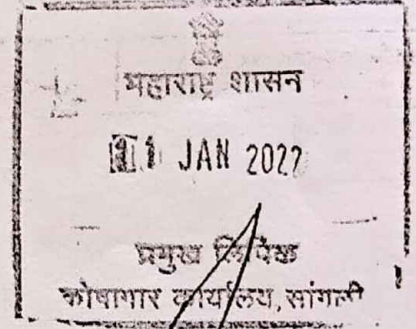 महाराष्ट्र शासन
11 JAN 2022
प्रमुख लिपिक
कोषागार कार्यालय, सांगली